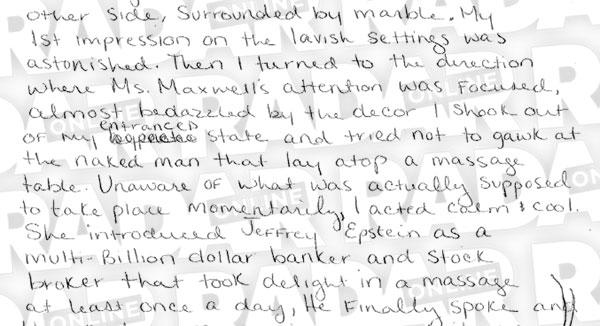 other side, surrounded by marble. My
1st impression on the lavish settings was
astonished. Then I turned to the direction
where Ms. Maxwell's attention was focused,
almost bedazzled by the decor I shook out
entranced
of my state and tried not to gawk at
the naked man that lay atop a massage
table. Unaware of what was actually supposed
to take place momentarily, I acted calm & cool.
She introduced Jeffrey Epstein as a
multi-Billion dollar banker and stock
broker that took delight in a massage
at least once a day, He finally spoke and
RADAR ONLINE